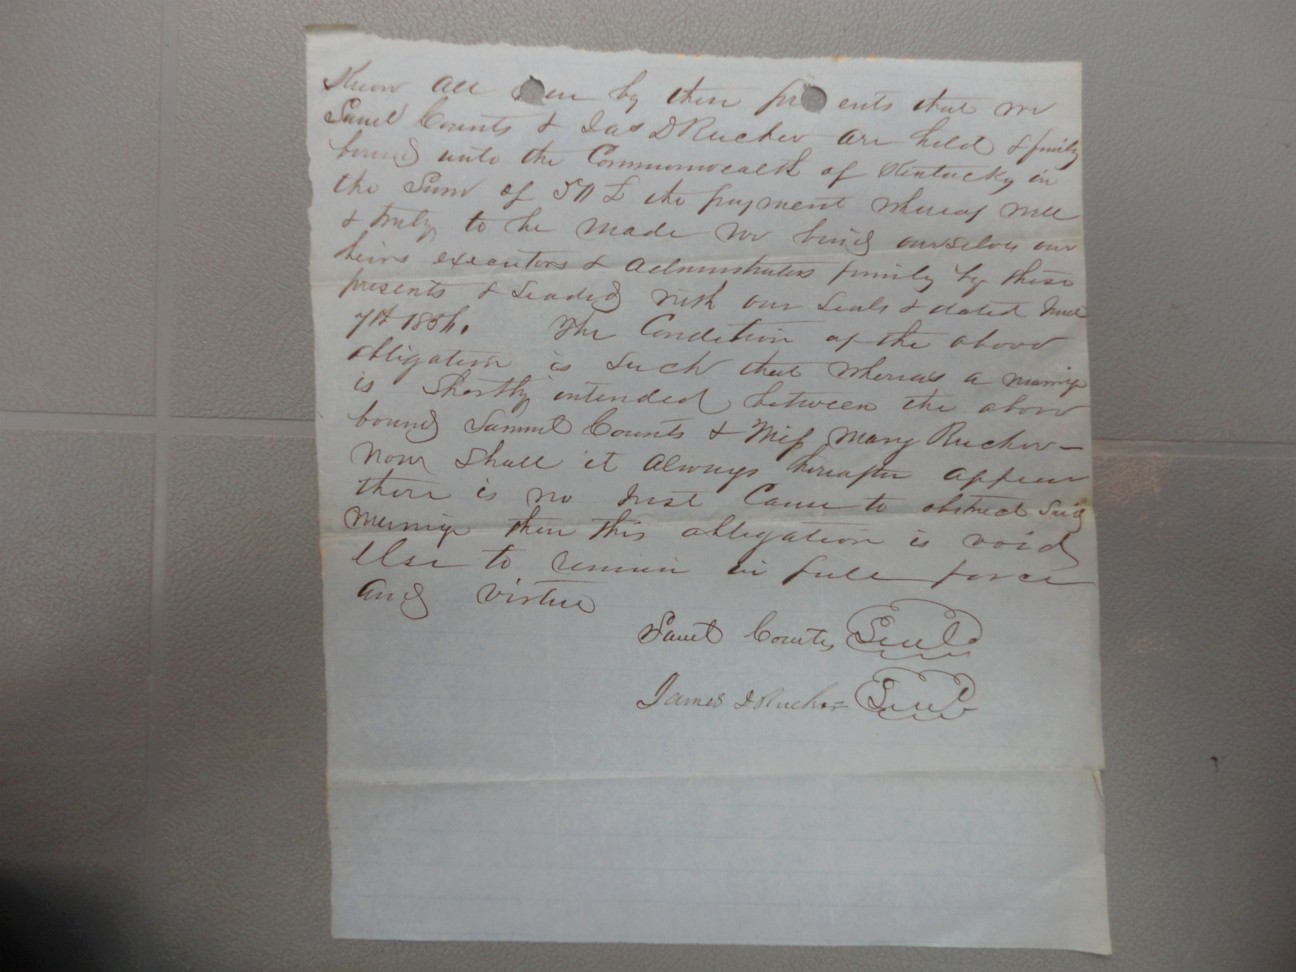 Know all en by these pr ents that we
Saml Counts & Jas D Rucker are held & firmly
bound unto the Commonwealth of Kentucky in
the Sum of 50 £ the payment whereof well
& truly to be made we bind ourselves our
heirs executors & administrators firmly by these
presents & Sealed with our Seals & dated June
7th The Condition of the above
obligation is Such that whereas a marriage
is Shortly intended between the above
bound Samuel Counts & Miss Mary Rucker —
Now Shall it always hereafter appear
there is no Just Cause to obstruct Said
marriage then this obligation is void
Else to remain in full force
and virtue
Samł Counts Seal
James D Rucker Seal